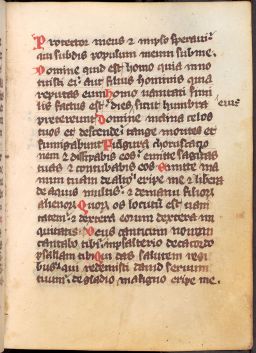 Protector meus & in ipso speraui:
qui subdis populum meum sub me.
Domine quid est homo quia inno
tuisti ei: aut filius hominis quia
reputas eum. homo uanitati simi
lis factus est: dies sicut humbra eius
pretereunt. Domine inclina celos
tuos et descende: tange montes et
fumigabunt. Fulgura choruscatio
nem & dissipabis eos: emitte sagittas
tuas & conturbabis eos. Emitte ma
num tuam de alto: eripe me & libera
de aquis multis: & de manu filiorum
alienorum. Quorum os locutum est uani
tatem: & dextera eorum dextera in
iquitatis. Deus canticum nouum
cantabo tibi: in psalterio decacordo
psallam tibi. Qui das salutem regi
bus: qui redemisti dauid seruum
tuum: de gladio maligno eripe me.